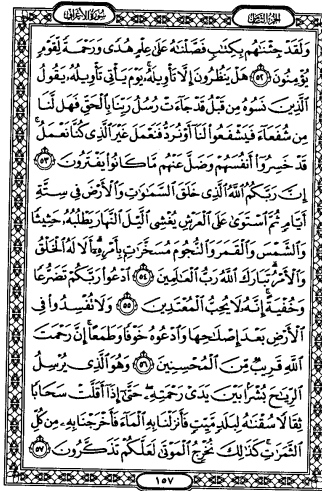 سورة الأعراف الجزء الثامن
وَلَقَدْ جِئْنَٰهُم بِكِتَٰبٍ فَصَّلْنَٰهُ عَلَىٰ عِلْمٍ هُدًى وَرَحْمَةً لِّقَوْمٍ
يُؤْمِنُونَ ۝٥٢ هَلْ يَنظُرُونَ إِلَّا تَأْوِيلَهُۥ يَوْمَ يَأْتِى تَأْوِيلُهُۥ يَقُولُ
ٱلَّذِينَ نَسُوهُ مِن قَبْلُ قَدْ جَآءَتْ رُسُلُ رَبِّنَا بِٱلْحَقِّ فَهَل لَّنَا
مِن شُفَعَآءَ فَيَشْفَعُوا۟ لَنَآ أَوْ نُرَدُّ فَنَعْمَلَ غَيْرَ ٱلَّذِى كُنَّا نَعْمَلُ ۚ
قَدْ خَسِرُوٓا۟ أَنفُسَهُمْ وَضَلَّ عَنْهُم مَّا كَانُوا۟ يَفْتَرُونَ ۝٥٣
إِنَّ رَبَّكُمُ ٱللَّهُ ٱلَّذِى خَلَقَ ٱلسَّمَٰوَٰتِ وَٱلْأَرْضَ فِى سِتَّةِ
أَيَّامٍ ثُمَّ ٱسْتَوَىٰ عَلَى ٱلْعَرْشِ يُغْشِى ٱلَّيْلَ ٱلنَّهَارَ يَطْلُبُهُۥ حَثِيثًا
وَٱلشَّمْسَ وَٱلْقَمَرَ وَٱلنُّجُومَ مُسَخَّرَٰتٍۭ بِأَمْرِهِۦٓ ۗ أَلَا لَهُ ٱلْخَلْقُ
وَٱلْأَمْرُ ۗ تَبَارَكَ ٱللَّهُ رَبُّ ٱلْعَٰلَمِينَ ۝٥٤ ٱدْعُوا۟ رَبَّكُمْ تَضَرُّعًا
وَخُفْيَةً ۚ إِنَّهُۥ لَا يُحِبُّ ٱلْمُعْتَدِينَ ۝٥٥ وَلَا تُفْسِدُوا۟ فِى
ٱلْأَرْضِ بَعْدَ إِصْلَٰحِهَا وَٱدْعُوهُ خَوْفًا وَطَمَعًا ۚ إِنَّ رَحْمَتَ
ٱللَّهِ قَرِيبٌ مِّنَ ٱلْمُحْسِنِينَ ۝٥٦ وَهُوَ ٱلَّذِى يُرْسِلُ
ٱلرِّيَٰحَ بُشْرًۢا بَيْنَ يَدَىْ رَحْمَتِهِۦ ۖ حَتَّىٰٓ إِذَآ أَقَلَّتْ سَحَابًا
ثِقَالًا سُقْنَٰهُ لِبَلَدٍ مَّيِّتٍ فَأَنزَلْنَا بِهِ ٱلْمَآءَ فَأَخْرَجْنَا بِهِۦ مِن كُلِّ
ٱلثَّمَرَٰتِ ۚ كَذَٰلِكَ نُخْرِجُ ٱلْمَوْتَىٰ لَعَلَّكُمْ تَذَكَّرُونَ ۝٥٧
١٥٧